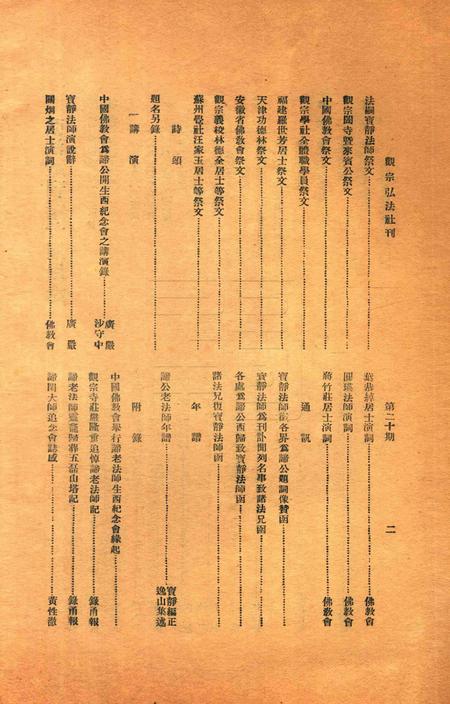 觀宗弘法社刊
第二十期
二
法嗣寶靜法師祭文
觀宗闔寺暨來賓公祭文
中國佛教會祭文
觀宗學社全體職學員祭文
福建羅世芳居士祭文
天津功德林祭文
安徽省佛教會祭文
觀宗義校林德全居士等祭文
蘇州覺社汪家玉居士等祭文
詩頌
題名另錄
講演
中國佛教會為諦公開生西紀念會之講演錄 廣嚴 沙守中
寶靜法師演說辭 廣嚴
關烱之居士演詞 佛教會
葉恭綽居士演詞 佛教會
圓瑛法師演詞 佛教會
蔣竹莊居士演詞 佛教會
通訊
寶靜法師致各界為諦公題詞像贊函
寶靜法師為刊訃開列名單致諸法兄函
各處為諦公西歸致寶靜法師函
諸法兄復寶靜法師函
年譜
諦公老法師年譜 寶靜編正 逸山集述
附錄
中國佛教會舉行諦老法師生西紀念會緣起
觀宗寺莊嚴隆重追悼諦老法師記 錄甬報
諦老法師靈龕歸葬五磊山塔記 錄甬報
諦閑大師追念會誌感 黃性澈